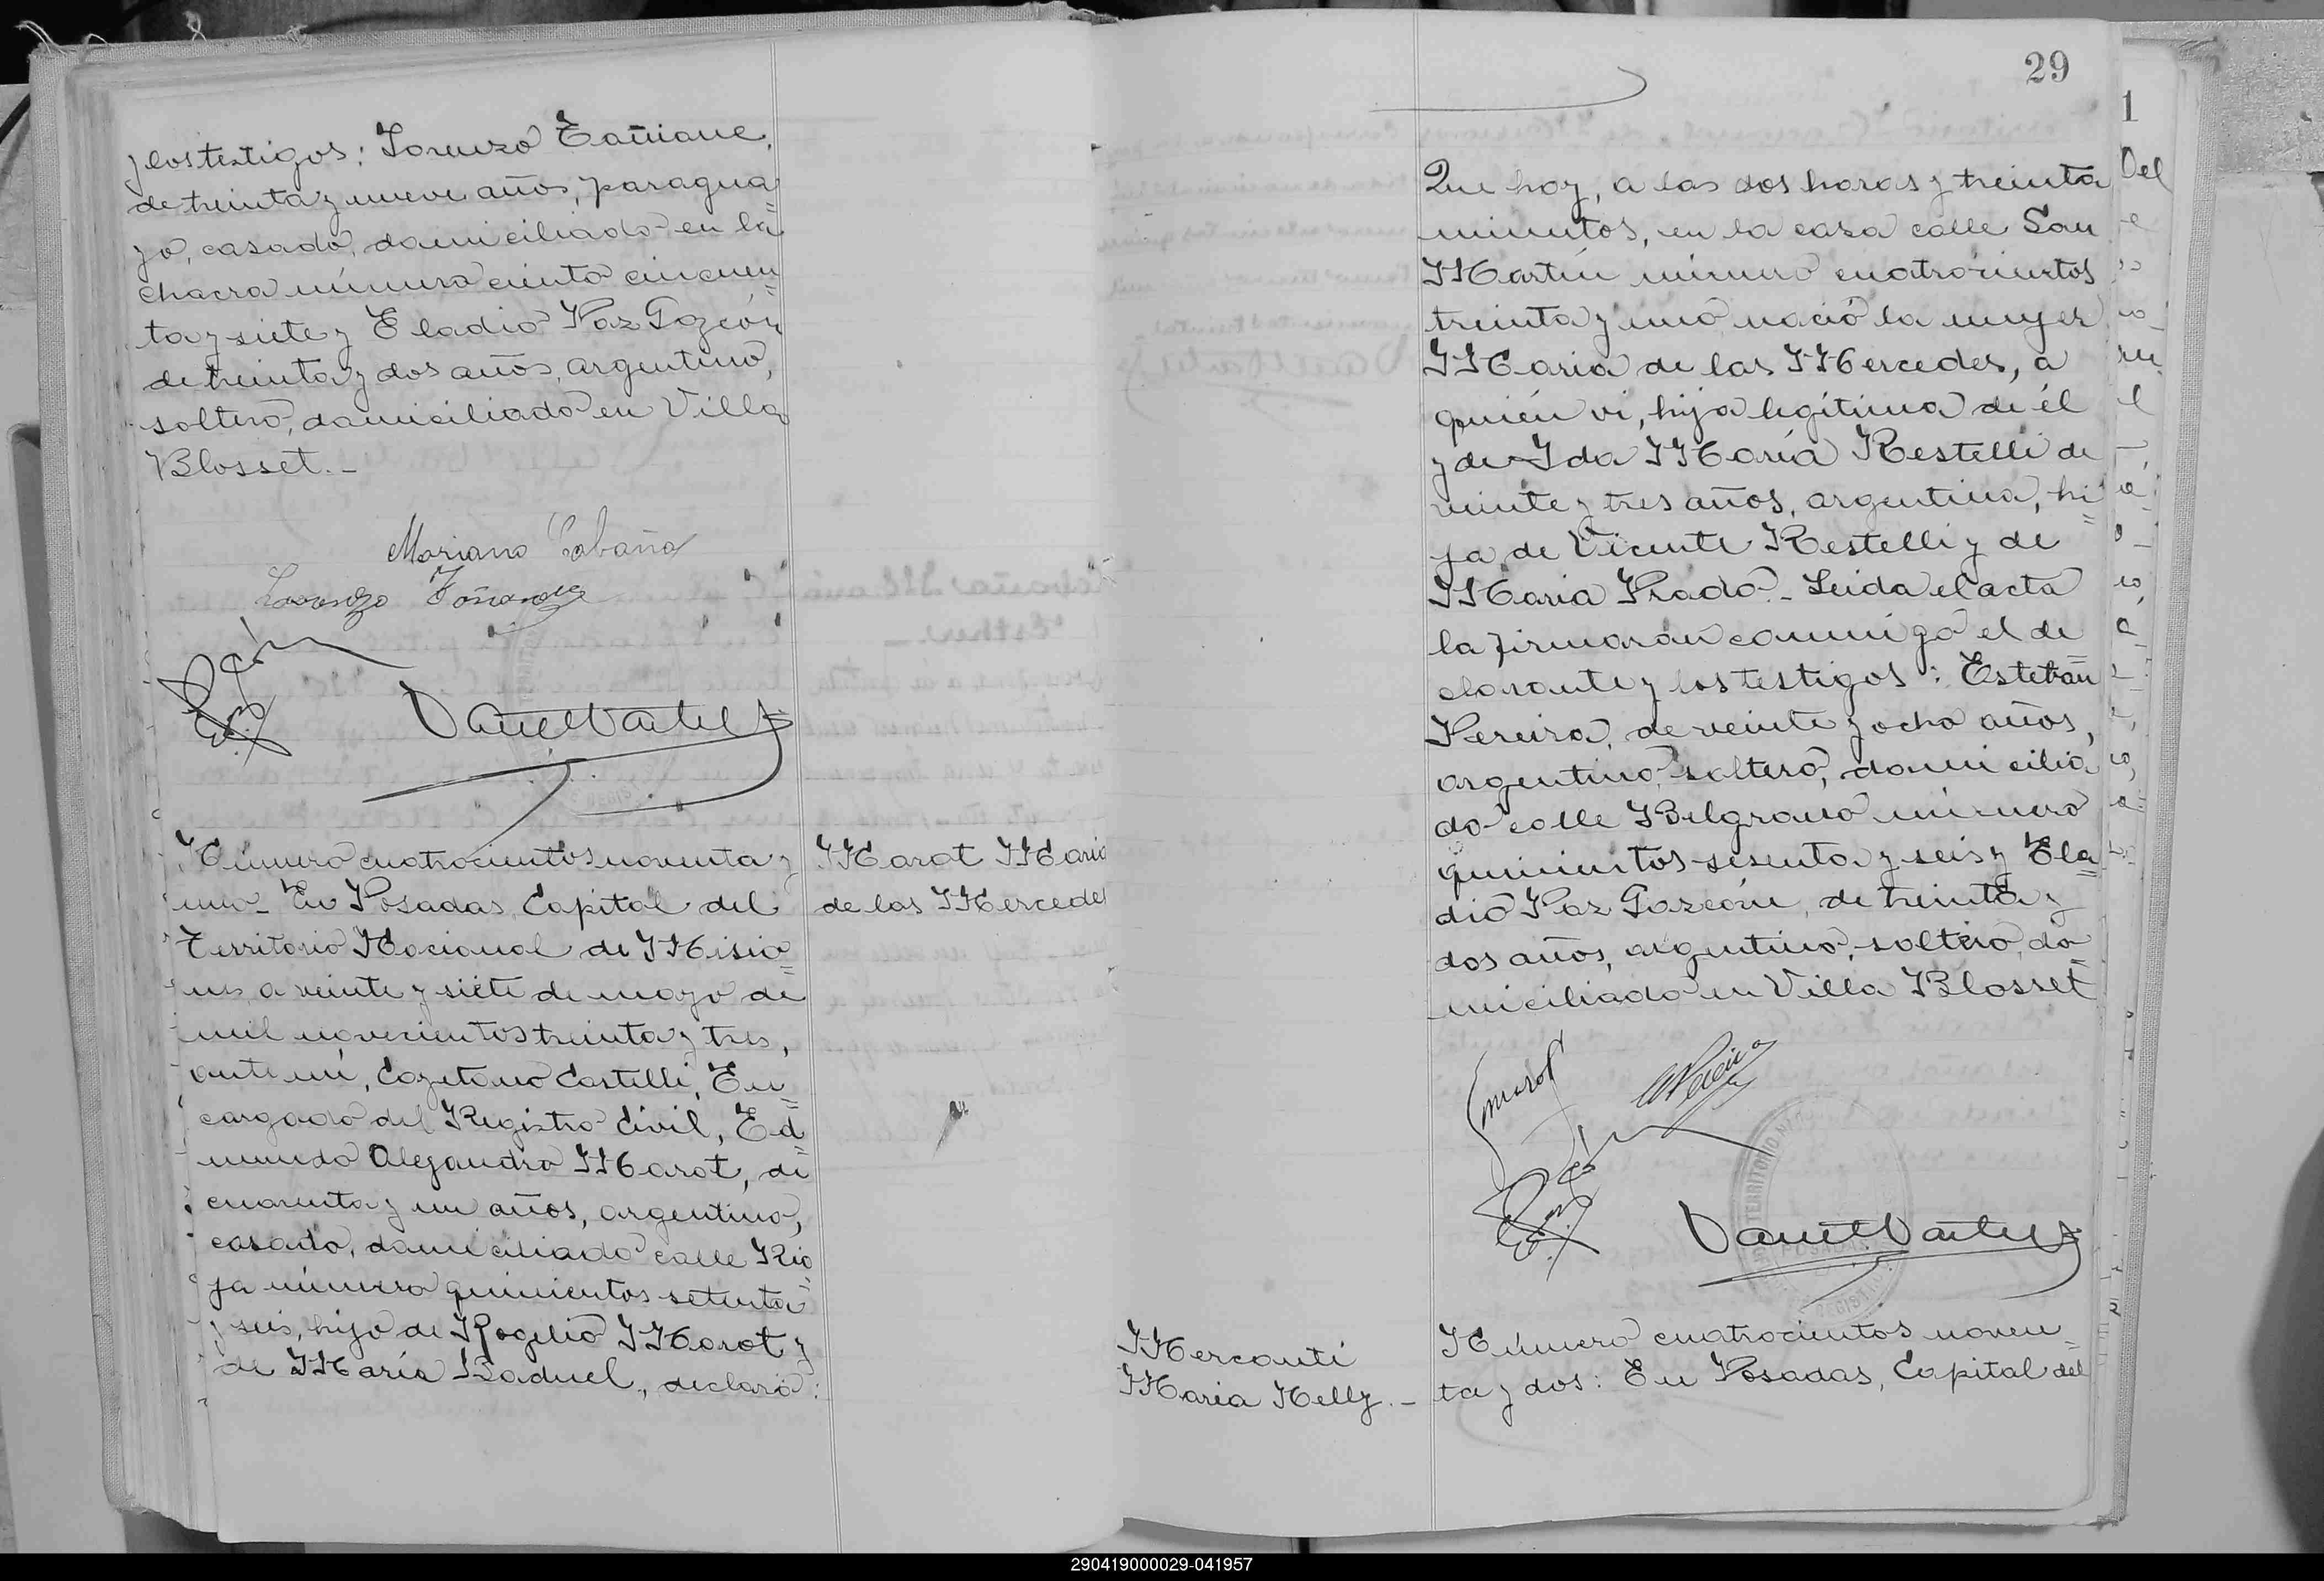 y los testigos: Lorenzo Tañiane,
de treinta y nueve años, paragua=
yo, casado, domiciliado en la
chacra número ciento cincuen=
ta y siete y Eladio Paz Garzón
de treinta y dos años, argentino,
soltero, domiciliado en Villa
Blosset.-
Mariano Cabaña
Lorenzo
Número cuatrocientos noventa y
uno- En Posadas, Capital del
Territorio Nacional de Misio=
nes, a veinte y siete de mayo de
mil novecientos treinta y tres,
ante mí, Cayetano Castelli, En=
cargado del Registro Civil, Ed=
mundo Alejandro Marot, de
cuarenta y un años, argentino,
casado, domiciliado calle Rio=
ja número quinientos setenta
y seis, hijo de Rogelio Marot y
de María Baduel, declaró:
Marot Maria
de las Mercedes
29
Que hoy, a las dos horas y treinta
minutos, en la casa calle San
Martín número cuatrocientos
treinta y uno nació la mujer
Maria de las Mercedes, a
quién vi, hija legítima de él
y de Ida María Restelli de
veinte y tres años, argentina, hi=
ja de Vicente Restelli y de
Maria Prado.- Leida el acta
la firmaron conmigo el de=
clarante y los testigos: Esteban
Pereira, de veinte y ocho años,
argentino, soltero, domicilia=
do calle Belgrano número
quinientos sesenta y seis y Ela=
dio Paz Garzón, de treinta y
dos años, argentino, soltero, do=
miciliado en Villa Blosset
Marot
Pereira
Merconti
Maria Nelly.-
Número cuatrocientos noven=
ta y dos: En Posadas, Capital del
1
Del
290419000029-041957